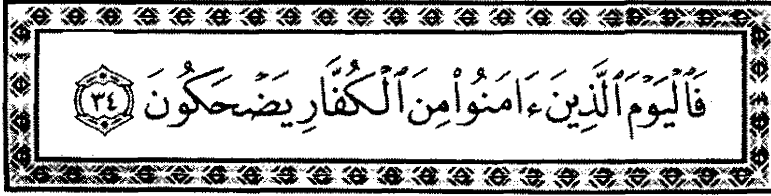 فَٱلۡيَوۡمَ ٱلَّذِينَ ءَامَنُواْ مِنَ ٱلۡكُفَّارِ يَضۡحَكُونَ ٣٤